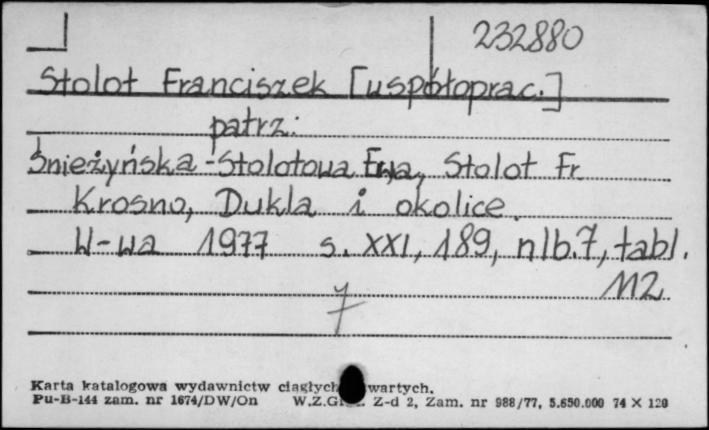 232880
Stolot Franciszek [współoprac.]
patrz:
Śnieżyńska-Stolotowa Ewa, Stolot Fr
Krosno, Dukla i okolice.
W-wa 1977 s. XXI, 189, nlb.7, tabl.
112
Karta katalogowa wydawnictw ciągłych wartych.
Pu-B-144 zam. nr 1674/DW/On W.Z.G Z-d 2, Zam. nr 988/77, 5.650.000 74 X 120